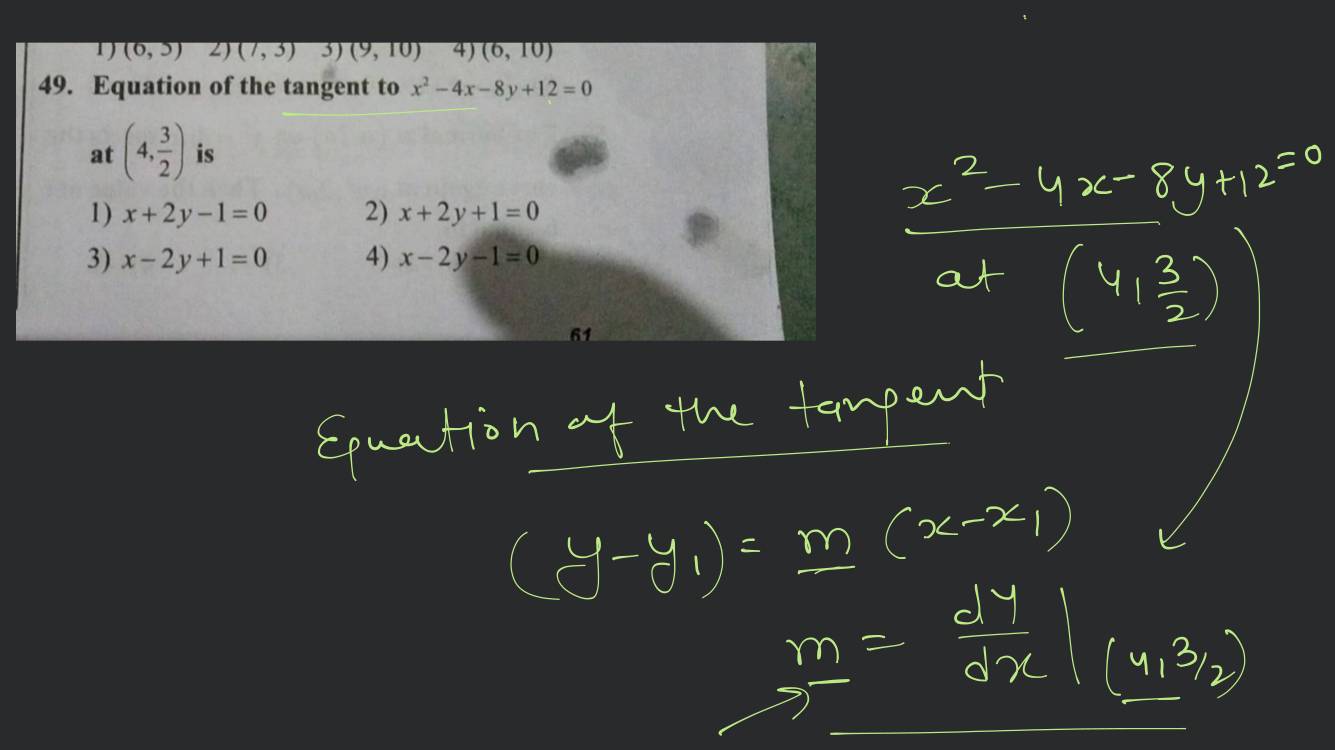 1) (6, 5) 2) (7, 3) 3) (9, 10) 4) (6, 10)
49. Equation of the tangent to x² − 4x − 8y + 12 = 0
at (4, 3/2) is
1) x + 2y − 1 = 0 2) x + 2y + 1 = 0
3) x − 2y + 1 = 0 4) x − 2y − 1 = 0
61
x² − 4x − 8y + 12 = 0
at (4, 3/2)
Equation of the tangent
(y − y₁) = m (x − x₁)
m = dy/dx | (4, 3/2)